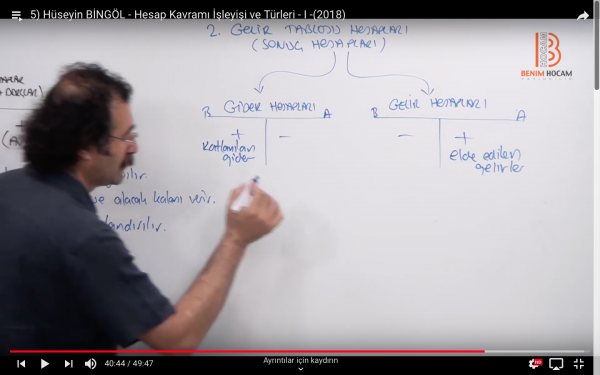 5) Hüseyin BİNGÖL - Hesap Kavramı İşleyişi ve Türleri - I -(2018)
2. GELİR TABLOSU HESAPLARI
(SONUÇ HESAPLARI)
BENİM HOCAM
B GİDER HESAPLARI A
B GELİR HESAPLARI A
+ -
- +
Katlanılan
gider
elde edilen
gelirler
ve alacak kalanı verir.
40:44 / 49:47
Ayrıntılar için kaydırın
HD